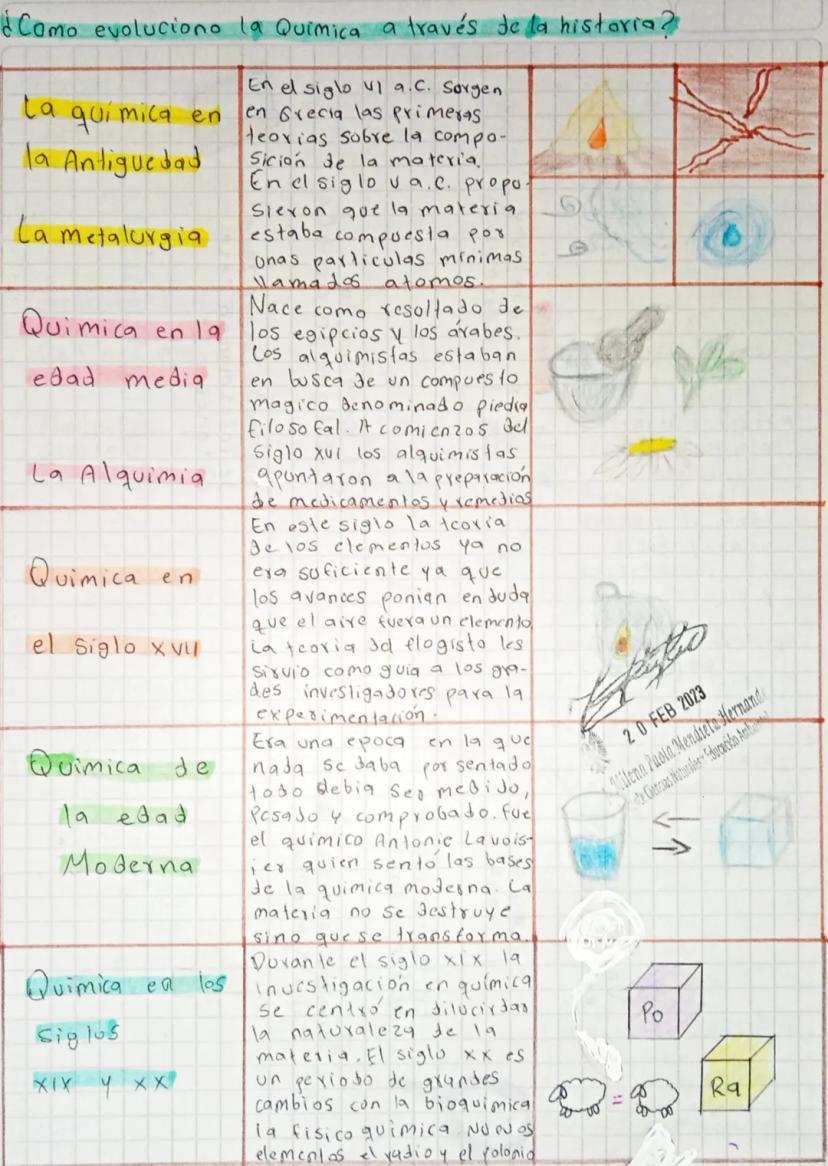 ¿Como evoluciono la Química a través de la historia?
La química en
la Antiguedad
La metalurgia
En el siglo VI a.C. Sorgen
en Grecia las primeras
teorias sobre la compo-
sición de la materia.
En el siglo V a.C. propo-
sieron que la materia
estaba compuesta por
unas particulas minimas
llamados atomos.
Quimica en la
edad media
La Alquimia
Nace como resoltado de
los egipcios y los árabes.
Los alquimistas estaban
en busca de un compuesto
magico denominado piedra
filosofal. A comienzos del
siglo XVI los alquimistas
apuntaron a la preparación
de medicamentos y remedios
Quimica en
el siglo XVII
En este siglo la teoria
de los elementos ya no
era suficiente ya que
los avances ponian en duda
que el aire fuera un elemento,
la teoria del flogisto les
sirvio como guia a los gra-
des investigadores para la
experimentación.
20 FEB 2023
Milena Paola Mendieta Hernand
de Ciencias Naturales - Educación Ambiental
Quimica de
la edad
Moderna
Era una epoca en la que
nada se daba por sentado
todo debia ser medido,
pesado y comprobado. Fue
el químico Antonie Lavois-
ier quien sentó las bases
de la quimica moderna. La
materia no se destruye
sino que se transforma.
Quimica en los
siglos
XIX y XX
Durante el siglo XIX la
investigación en química
se centró en dilucirdar
la naturaleza de la
materia. El siglo XX es
un periodo de grandes
cambios con la bioquimica
la fisico quimica. Nuevos
elementos el radio y el polonio
Po
=
Ra